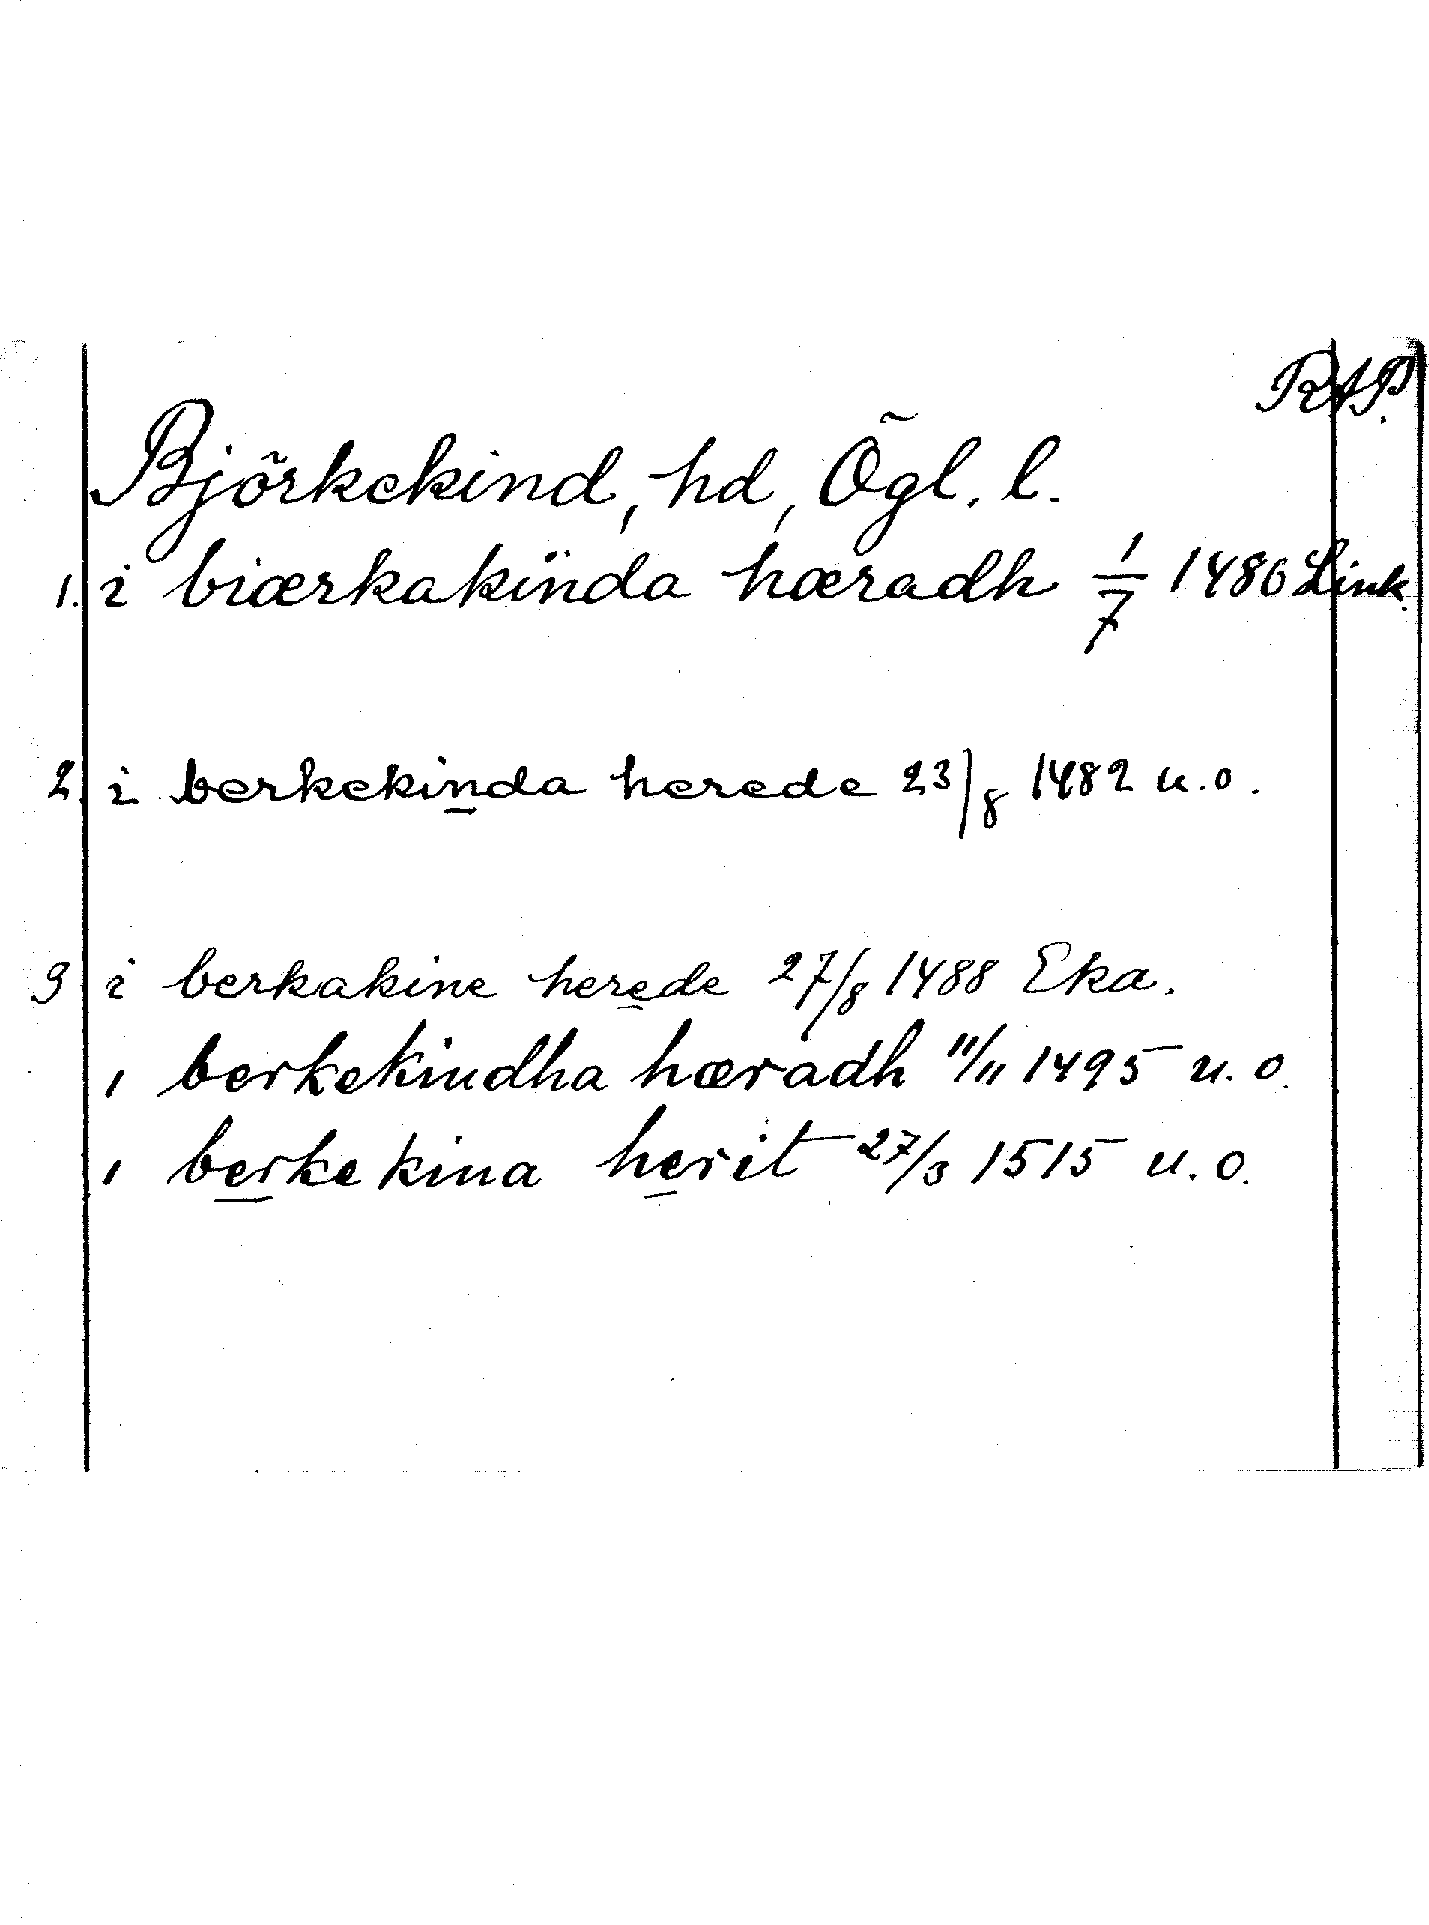 RAP.
Björkekind, hd, Ögl. l.
1. i biærkakïnda hæradh 1/7 1486 Link.
2. i berkekinda herede 23/8 1482 u.o.
3 i berkakine herede 27/8 1488 Eka.
i berkekindha hæradh 11/11 1495 u.o.
i berkekina herit 27/3 1515 u.o.